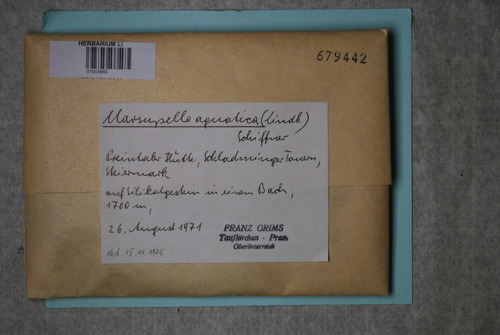 HERBARIUM LI
679442
Marsupella aquatica (Lindb.)
Schiffner
Preintaler Hütte, Schladminger Tauern,
Steiermark
auf Silikatgestein in einem Bach,
1700 m,
26. August 1971
FRANZ GRIMS
Taufkirchen - Pram
Oberösterreich
det. 15.11.1975